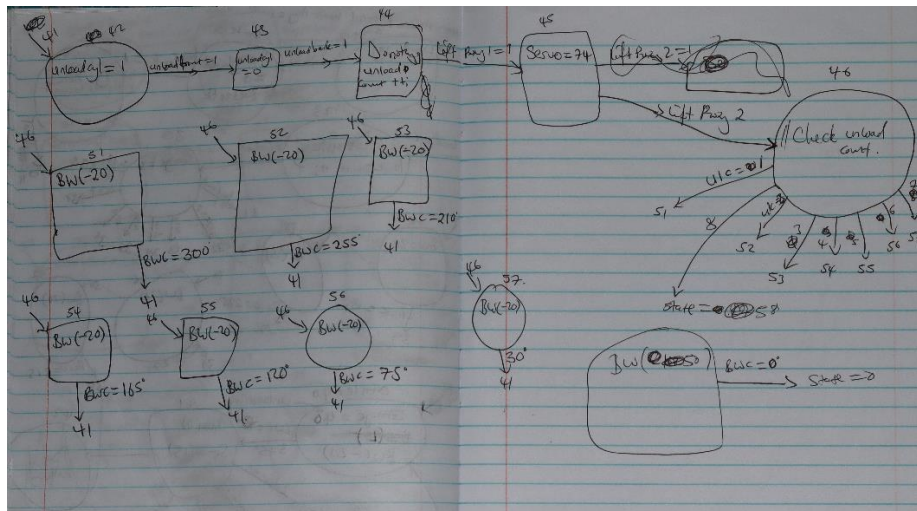 41
42
unloadcyl = 1
unloadfront = 1
43
unloadcyl
= 0
unloadback = 1
44
Donoting
unload
count ++;
Lift Prxy 1 = 1
45
Servo = 74
Lift Prxy 2 = 1
Lift Prxy 2
46
// Check unload
count.
ulc = 1
51
8
52
3
53
4
54
55
6
56
State = 58
46
51
BW(-20)
BWC = 300°
41
46
52
BW(-20)
BWC = 255°
41
46
53
BW(-20)
BWC = 210°
41
46
54
BW(-20)
BWC = 165°
41
46
55
BW(-20)
BWC = 120°
41
46
56
BW(-20)
BWC = 75°
41
46
57.
BW(-20)
30°
41
BW( 50)
BWC = 0°
State = 0